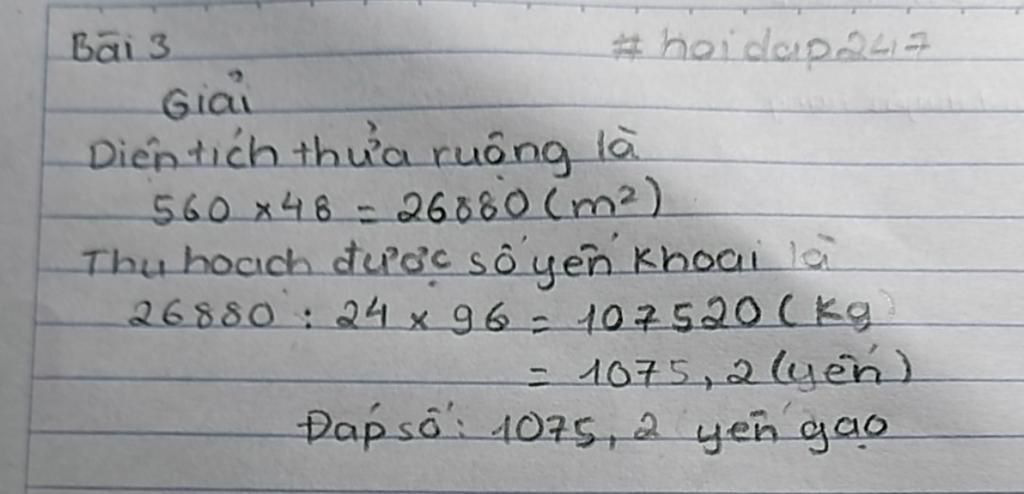 Bài 3
#hoidap247
Giải
Diện tích thửa ruộng là
560 × 48 = 26880 (m²)
Thu hoạch được số yến khoai là
26880 : 24 × 96 = 107520 (kg)
= 1075,2 (yến)
Đáp số: 1075,2 yến gạo